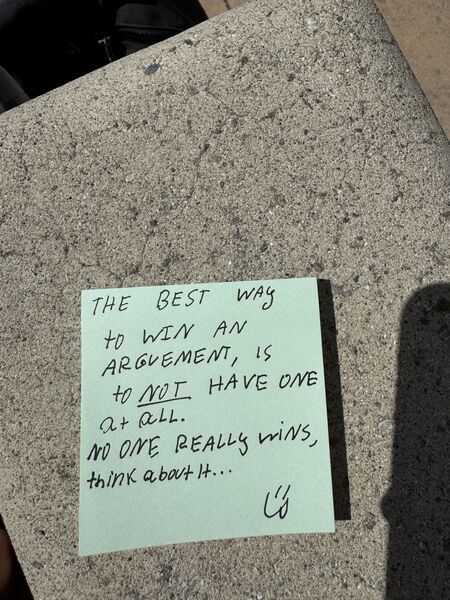 THE BEST WAY
to WIN AN
ARGUEMENT, IS
to NOT HAVE ONE
at ALL.
NO ONE REALLY WINS,
think about It...